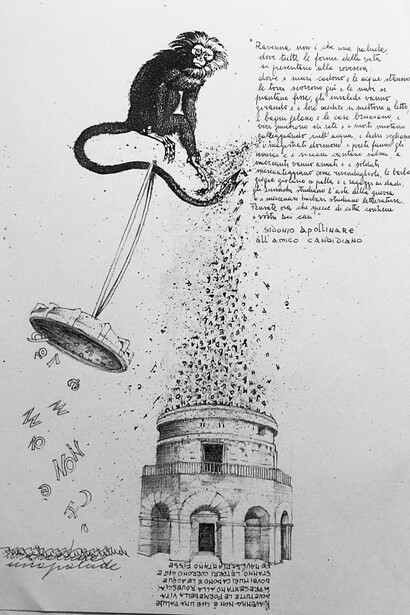 "Ravenna non è che una palude
dove tutte le forme della vita
si presentano alla rovescia
dove i muri cadono e le acque stanno
le torri scorrono giù e le navi si
piantano fisse, gli invalidi vanno
girando e i loro medici si mettono a letto
i bagni gelano e le case bruciano, i
vivi muoiono di sete e i morti nuotano
galleggiando sull'acqua, i ladri vegliano
e i magistrati dormono, i preti fanno gli
usurai e i siriani cantano salmi, i
mercanti vanno armati e i soldati
mercanteggiano come rivenduglioli, le barbe
grigie giocano a palla e i ragazzi ai dadi,
gli eunuchi studiano l'arte della guerra
e i mercenari barbari studiano letteratura.
Pensate ora che specie di città contiene
i vostri Dei Lari"
SIDONIO APOLLINARE
all'AMICO CANDIDIANO
NON
una palude
RAVENNA NON È CHE UNA PALUDE
DOVE TUTTE LE FORME DELLA VITA
SI PRESENTANO ALLA ROVESCIA
DOVE I MURI CADONO E LE ACQUE
STANNO, LE TORRI SCORRONO GIÙ E
LE NAVI SI PIANTANO FISSE